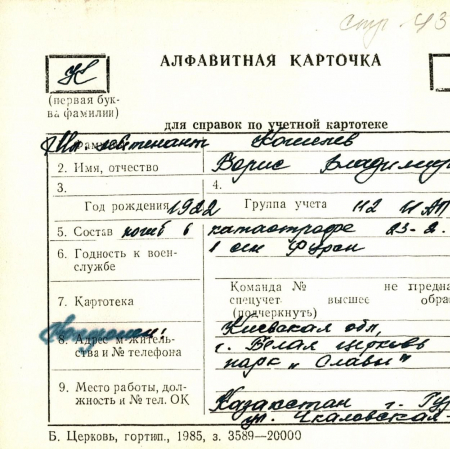 стр. 43
К
АЛФАВИТНАЯ КАРТОЧКА
(первая бук-
ва фамилии)
для справок по учетной картотеке
Мл. лейтенант Кошелев
2. Имя, отчество Борис Владимир
3. 4.
Год рождения 1922 Группа учета 112 ИАП
5. Состав погиб в катастрофе 23-2.
6. Годность к воен-
службе
1 ем
Команда № не предна
спецучет высшее обра
(подчеркнуть)
7. Картотека
8. Адрес м-житель-
ства и № телефона
Киевская обл,
г. Белая церковь
парк „Славы"
9. Место работы, дол-
жность и № тел. ОК
Казахстан г. Гу
ул. Чкаловская-
Б. Церковь, гортип., 1985, з. 3589—20000